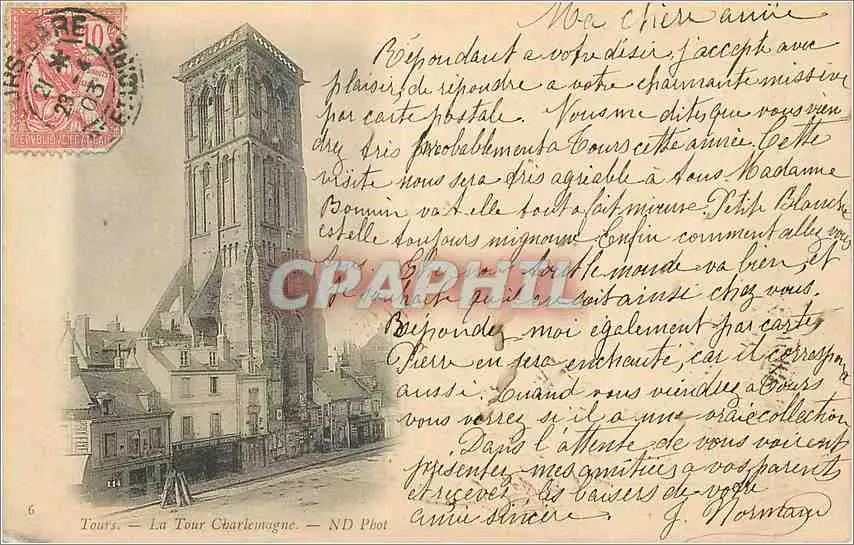 Ma chère amie
Répondant a votre désir, j'accepte avec
plaisir, de répondre a votre charmante missive
par carte postale. Vous me dites que vous vien
drez très probablement a Tours cette année. Cette
visite nous sera très agréable à tous. Madame
Bonnin va t elle tout a fait mieux. Petite Blanche
est elle toujours mignonne. Enfin comment allez vous
tous. tout le monde va bien, et
je souhaite qu'il en soit ainsi chez vous.
Répondez moi également par carte,
Pierre en sera enchanté, car il correspon
aussi. Quand vous viendrez a Tours
vous verrez si il a une vraie collection
Dans l'attente de vous voir ent
présentez mes amitiés a vos parents
et recevez les baisers de votre
amie sincère. J. Normand
CPAPHIL
10
RÉPUBLIQUE FRANÇAISE
GARE
21
28
03
6
Tours. — La Tour Charlemagne. — ND Phot